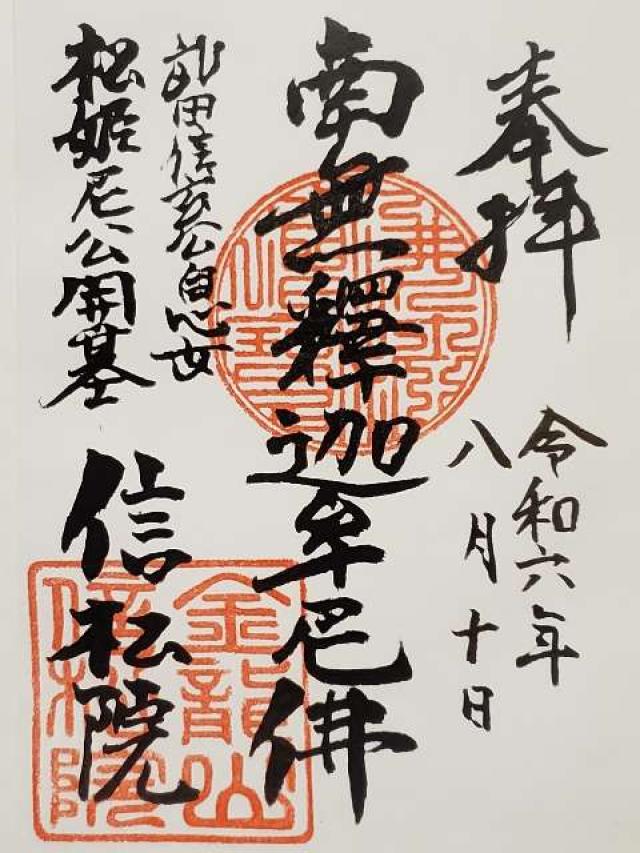 奉拝
令和六年
八月十日
南無釋迦牟尼佛
武田信玄公息女
松姫尼公開基
信松院
金龍山
信松院